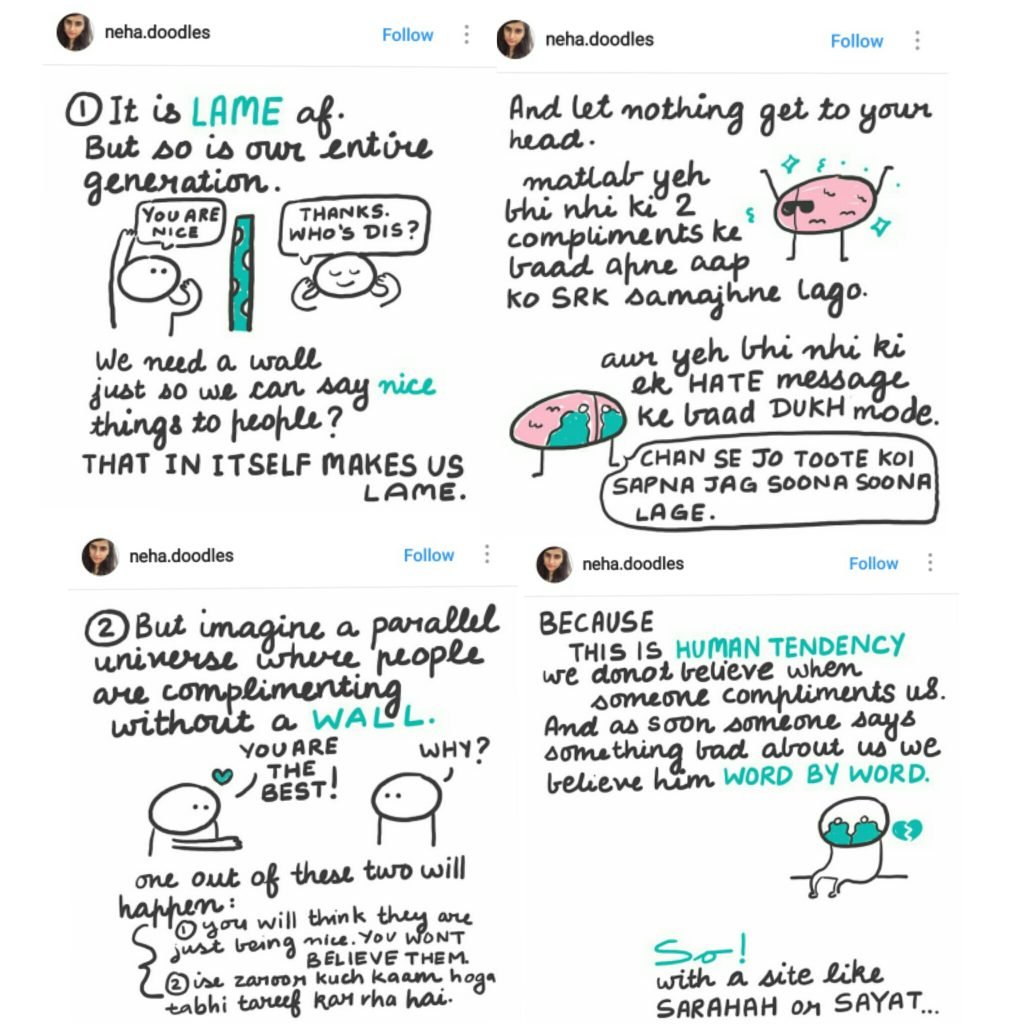 neha.doodles
Follow
① It is LAME af.
But so is our entire
generation.
YOU ARE
NICE
THANKS.
WHO'S DIS?
We need a wall
just so we can say nice
things to people?
THAT IN ITSELF MAKES US
LAME.
neha.doodles
Follow
And let nothing get to your
head.
matlab yeh
bhi nhi ki 2
compliments ke
baad apne aap
ko SRK samajhne lago.
aur yeh bhi nhi ki
ek HATE message
ke baad DUKH mode.
CHAN SE JO TOOTE KOI
SAPNA JAG SOONA SOONA
LAGE.
neha.doodles
Follow
② But imagine a parallel
universe where people
are complimenting
without a WALL.
YOU ARE
THE
BEST!
WHY?
one out of these two will
happen:
① you will think they are
just being nice. YOU WONT
BELIEVE THEM.
② ise zaroor kuch kaam hoga
tabhi tareef kar rha hai.
neha.doodles
Follow
BECAUSE
THIS IS HUMAN TENDENCY
we donot believe when
someone compliments us.
And as soon someone says
something bad about us we
believe him WORD BY WORD.
So!
with a site like
SARAHAH or SAYAT...